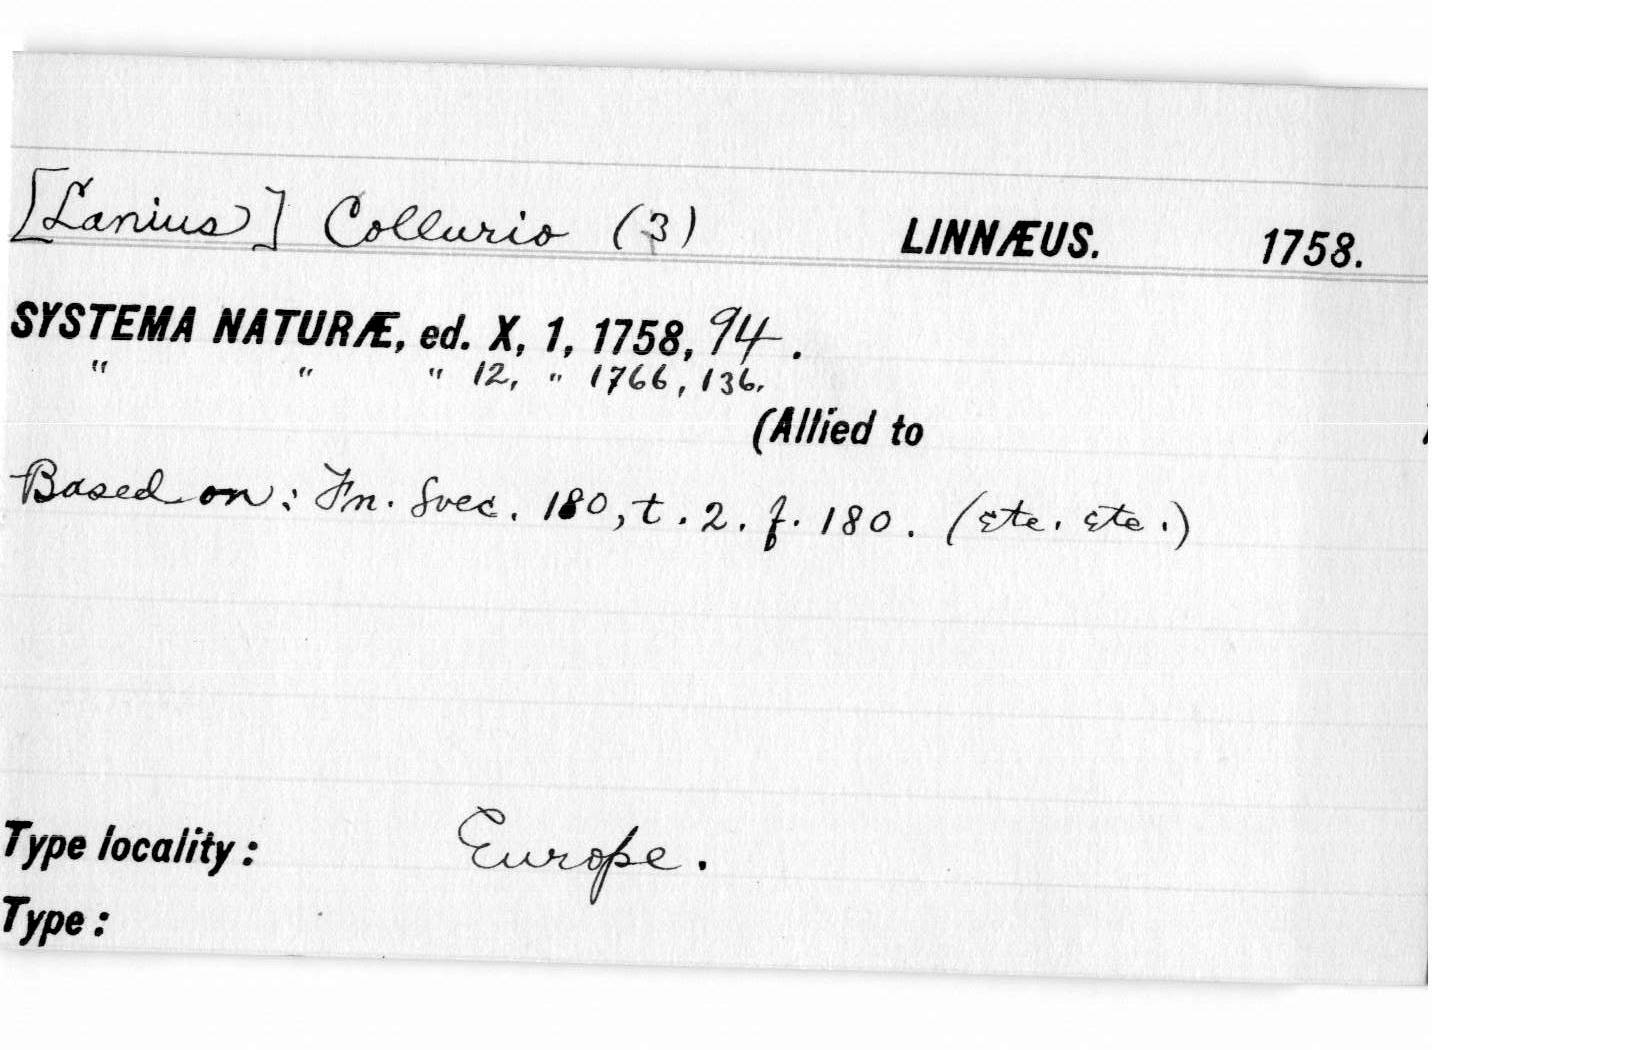 [Lanius] Collurio (3) LINNÆUS. 1758.
SYSTEMA NATURÆ, ed. X, 1, 1758, 94.
" " " 12, " 1766, 136.
(Allied to
Based on: Fn. Svec. 180, t. 2. f. 180. (etc. etc.)
Type locality: Europe.
Type: